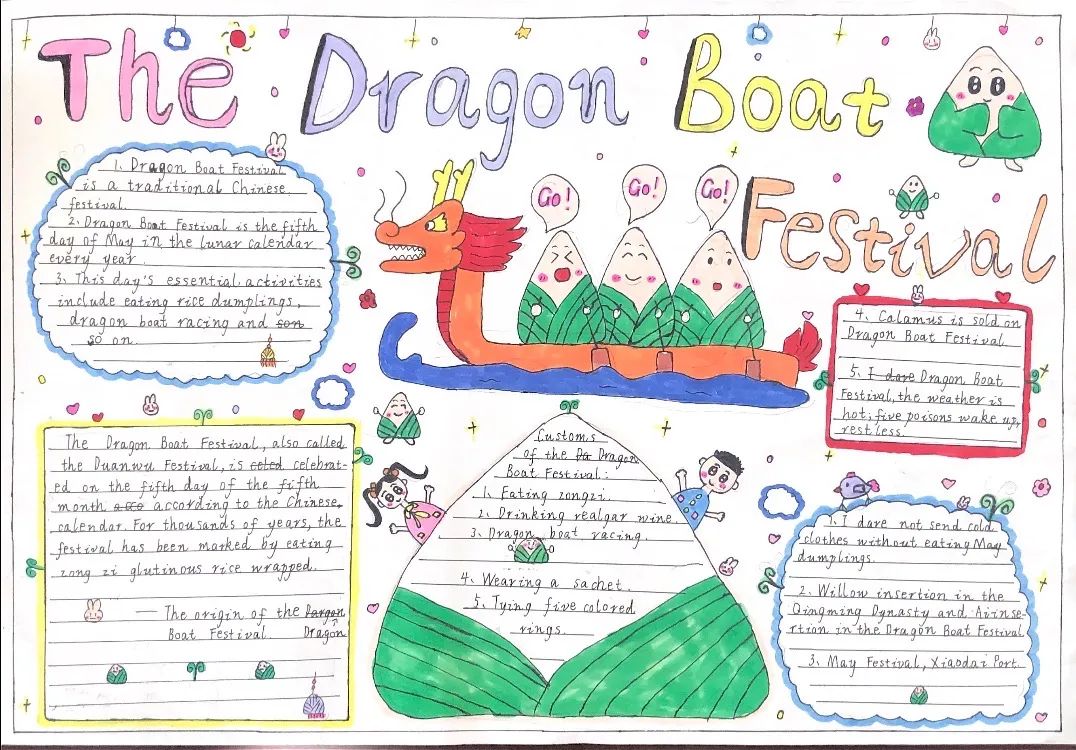 The Dragon Boat
Festival
1、Dragon Boat Festival
is a traditional Chinese
festival.
2、Dragon Boat Festival is the fifth
day of May in the lunar calendar
every year.
3、This day's essential activities
include eating rice dumplings,
dragon boat racing and son
so on.
Go!
Go!
Go!
4、Calamus is sold on
Dragon Boat Festival
5、I dare Dragon Boat
Festival, the weather is
hot, five poisons wake up,
restless.
The Dragon Boat Festival, also called
the Duanwu Festival, is celebrat-
ed on the fifth day of the fifth
month according to the Chinese
calendar. For thousands of years, the
festival has been marked by eating
zong zi glutinous rice wrapped.
The origin of the Dargon
Boat Festival Dragon
Customs
of the Dragon
Boat Festival:
1、Eating zongzi.
2、Drinking realgar wine.
3、Dragon boat racing.
4、Wearing a sachet.
5、Tying five colored
rings.
1、I dare not send cold
clothes without eating May
dumplings.
2、Willow insertion in the
Qingming Dynasty and Ai inse-
rtion in the Dragon Boat Festival
3、May Festival, Xiaodai Port.